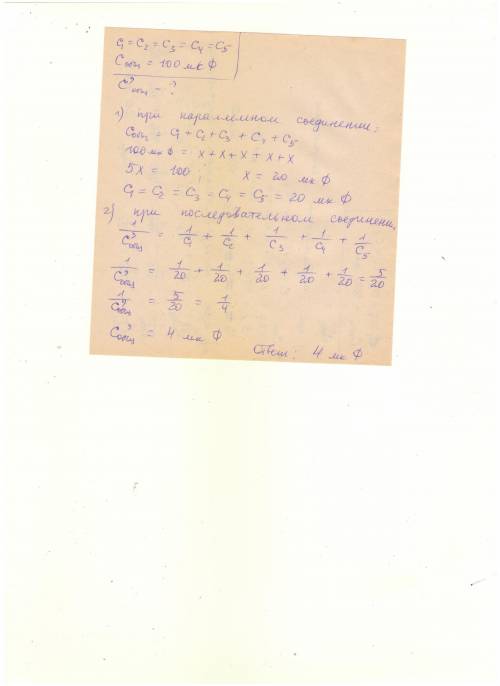 C1 = C2 = C3 = C4 = C5
Cобщ = 100 мк Ф
Cобщ - ?
1) при параллельном соединении:
Cобщ = C1 + C2 + C3 + C4 + C5
100 мк Ф = x + x + x + x + x
5x = 100; x = 20 мк Ф
C1 = C2 = C3 = C4 = C5 = 20 мк Ф
2) при последовательном соединении
1/Cобщ = 1/C1 + 1/C2 + 1/C3 + 1/C4 + 1/C5
1/Cобщ = 1/20 + 1/20 + 1/20 + 1/20 + 1/20 = 5/20
1/Cобщ = 5/20 = 1/4
Cобщ = 4 мк Ф
Ответ: 4 мк Ф